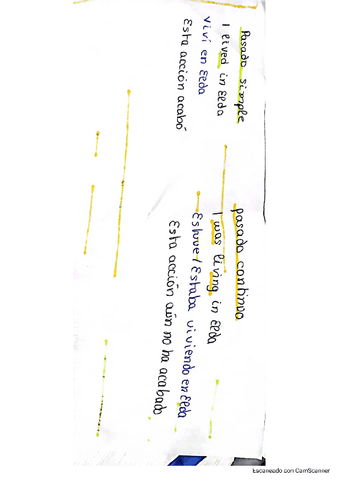 Pasado simple
I lived in Elda
Viví en Elda
Esta acción acabó
pasado continuo
I was living in Elda
Estuve / Estaba viviendo en Elda
Esta acción aún no ha acabado
Escaneado con CamScanner